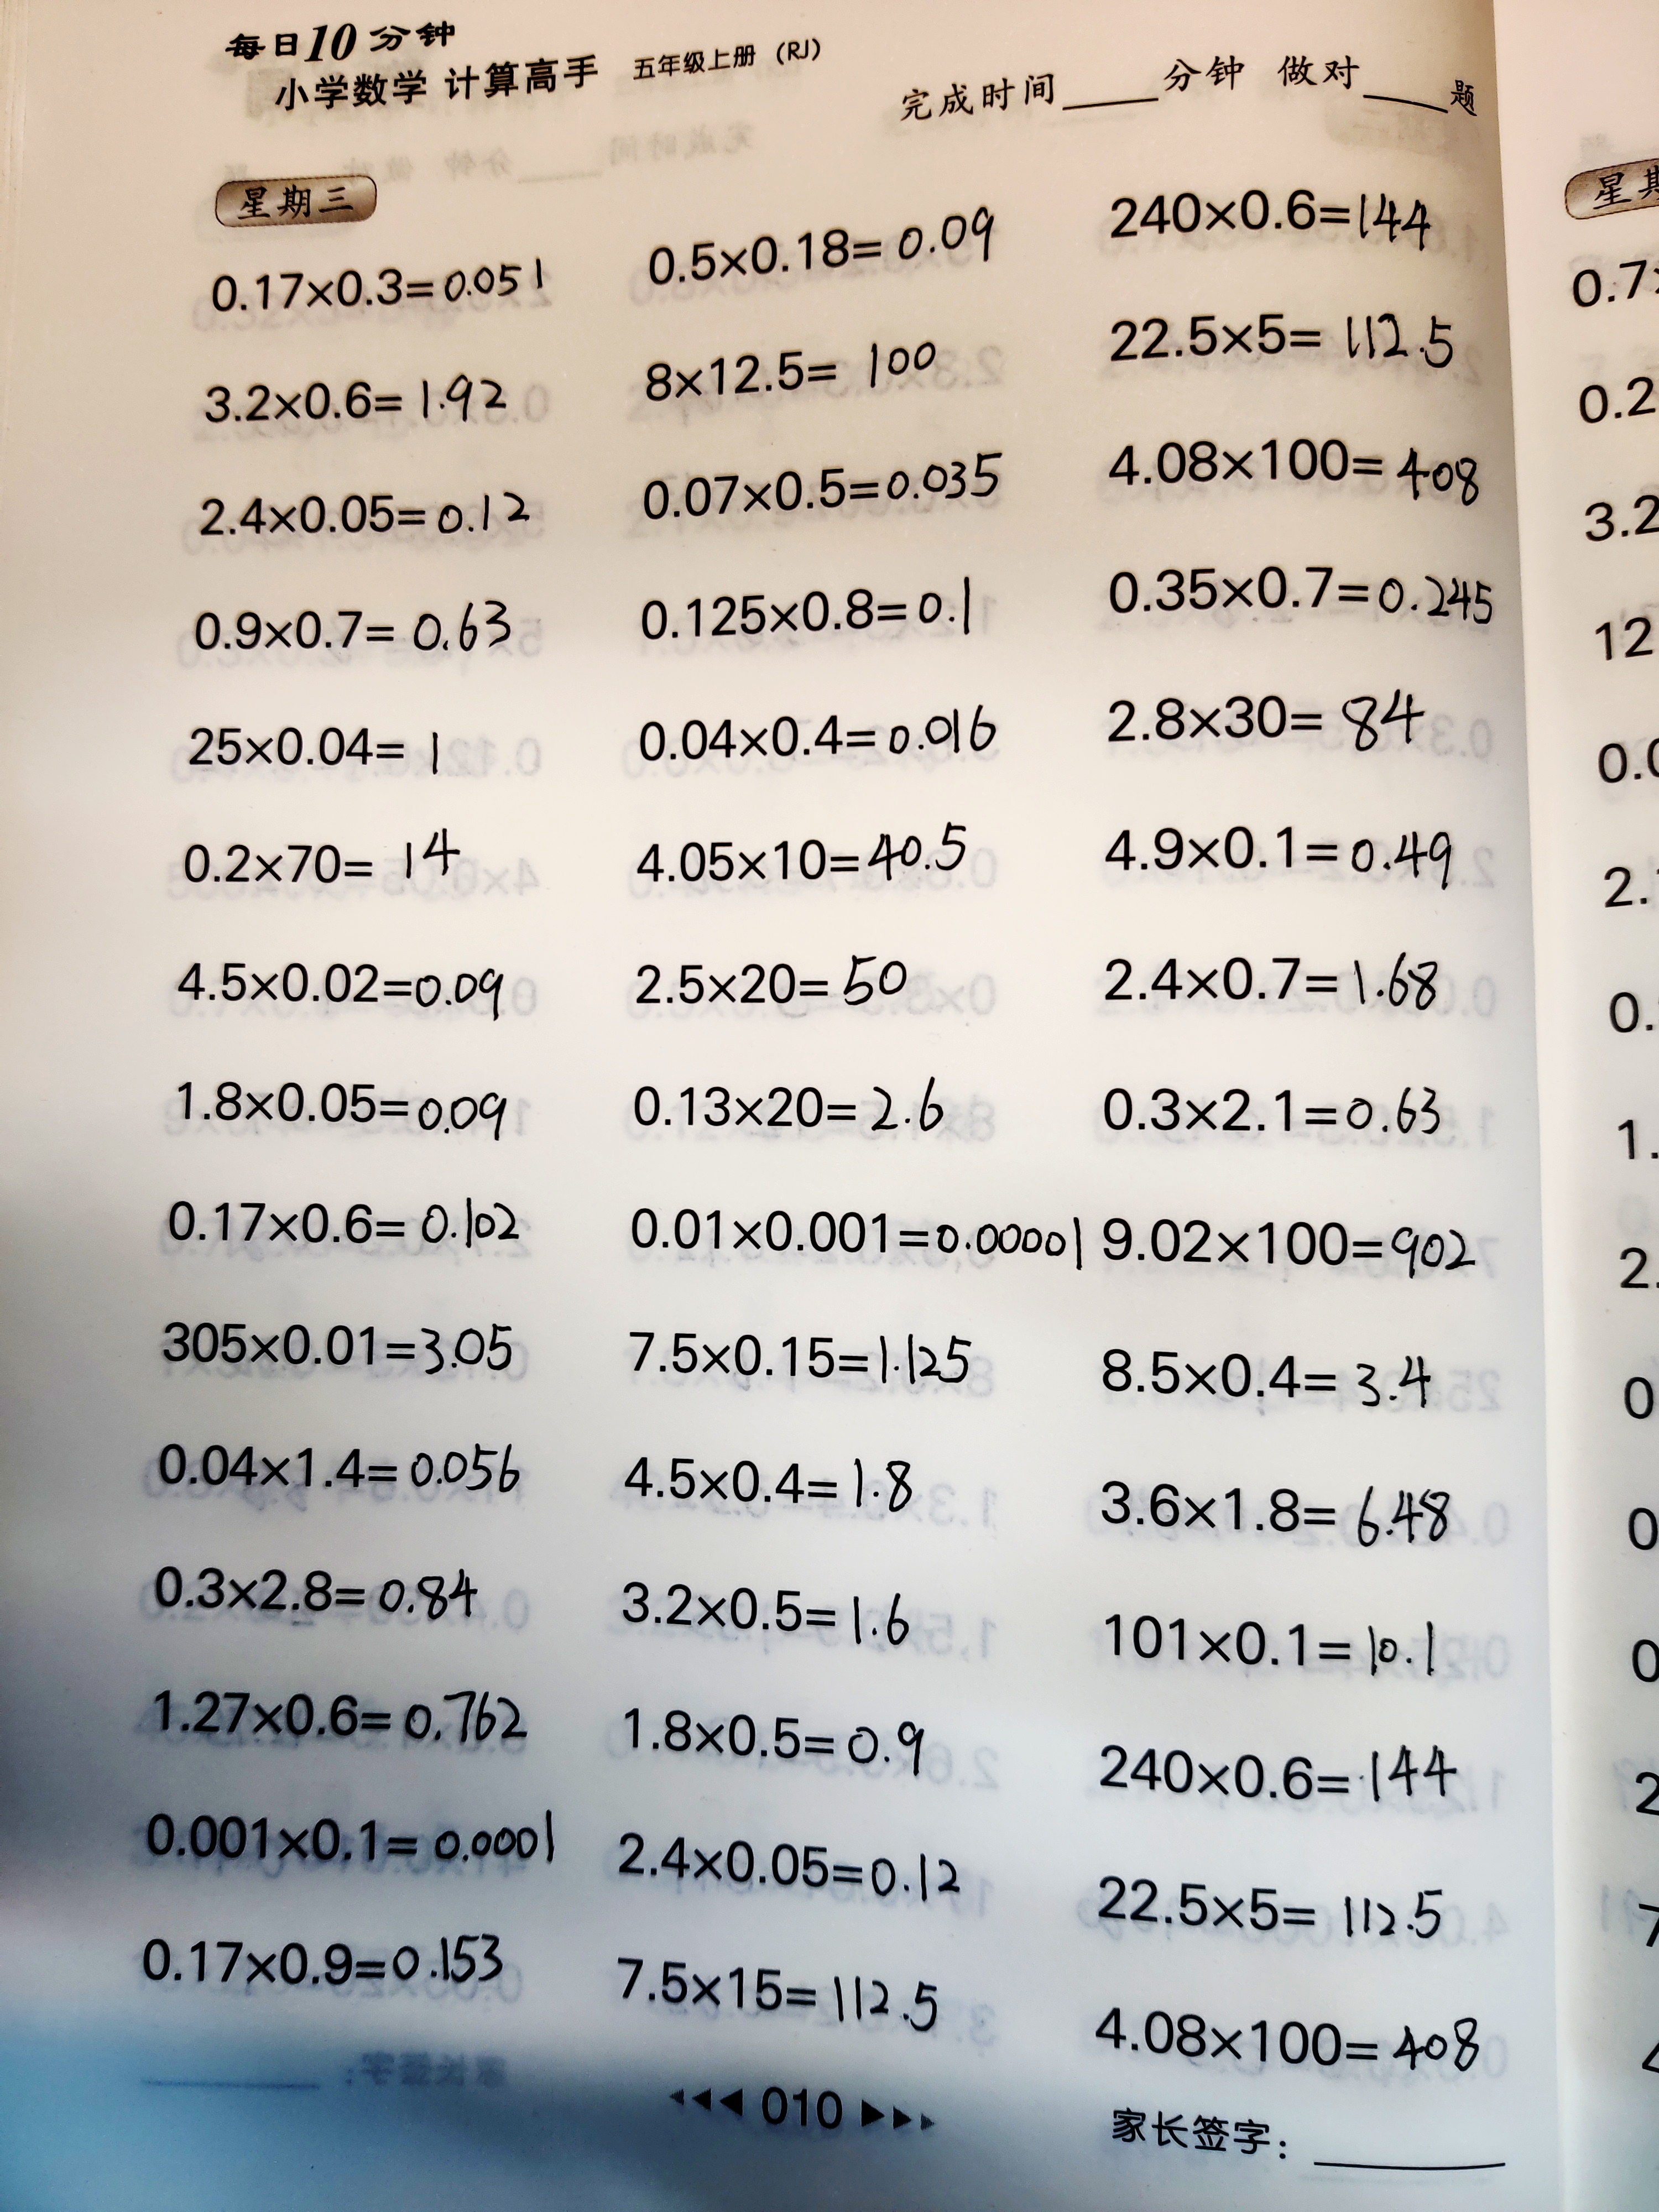 每日10分钟
小学数学 计算高手 五年级上册 (RJ)
完成时间____分钟 做对____题
星期三
0.17×0.3=0.051
3.2×0.6=1.92
2.4×0.05=0.12
0.9×0.7=0.63
25×0.04=1
0.2×70=14
4.5×0.02=0.09
1.8×0.05=0.09
0.17×0.6=0.102
305×0.01=3.05
0.04×1.4=0.056
0.3×2.8=0.84
1.27×0.6=0.762
0.001×0.1=0.0001
0.17×0.9=0.153
0.5×0.18=0.09
8×12.5=100
0.07×0.5=0.035
0.125×0.8=0.1
0.04×0.4=0.016
4.05×10=40.5
2.5×20=50
0.13×20=2.6
0.01×0.001=0.00001
7.5×0.15=1.125
4.5×0.4=1.8
3.2×0.5=1.6
1.8×0.5=0.9
2.4×0.05=0.12
7.5×15=112.5
240×0.6=144
22.5×5=112.5
4.08×100=408
0.35×0.7=0.245
2.8×30=84
4.9×0.1=0.49
2.4×0.7=1.68
0.3×2.1=0.63
9.02×100=902
8.5×0.4=3.4
3.6×1.8=6.48
101×0.1=10.1
240×0.6=144
22.5×5=112.5
4.08×100=408
010
家长签字：____